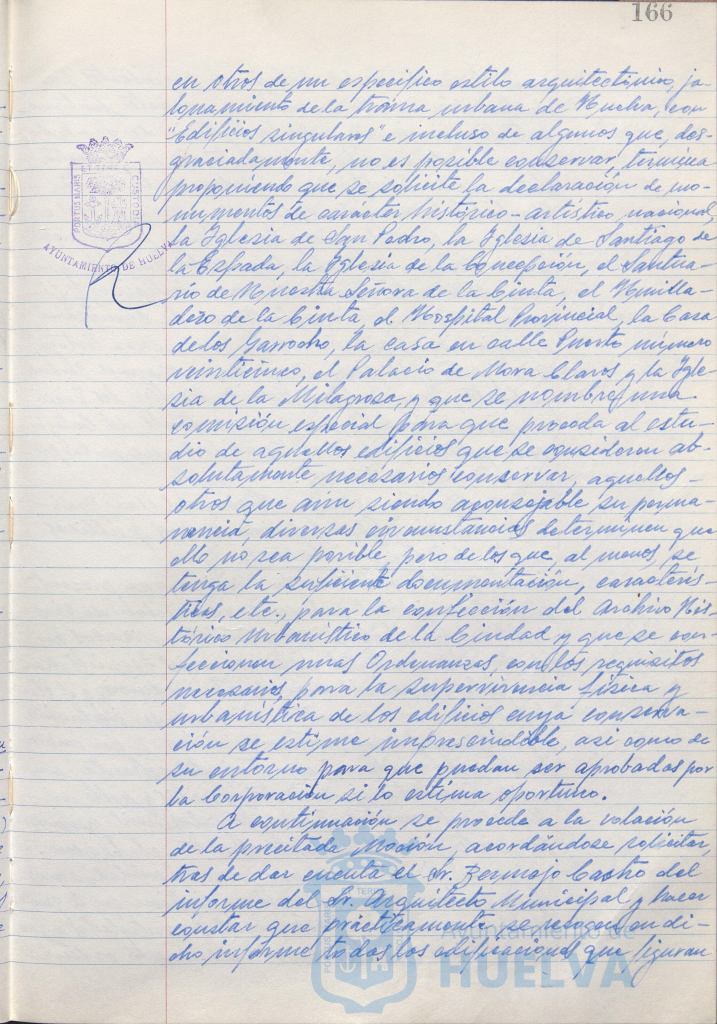 166
en otros de un específico estilo arquitectónico, ja-
lonamiento de la trama urbana de Huelva, con
"Edificios singulares" e incluso de algunos que, des-
graciadamente, no es posible conservar, termina
proponiendo que se solicite la declaración de mo-
numentos de caracter histórico-artístico nacional,
la Iglesia de San Pedro, la Iglesia de Santiago de
la Espada, la Iglesia de la Concepción, el Santua-
rio de Nuestra Señora de la Cinta, el Humilla-
dero de la Cinta, el Hospital Provincial, la Casa
de los Garrocho, la casa en calle Puerto número
veinticinco, el Palacio de Mora Claros y la Igle-
sia de la Milagrosa, y que se nombre una
comisión especial para que proceda al estu-
dio de aquellos edificios que se consideren ab-
solutamente necesarios conservar, aquellos
otros que aún siendo aconsejable su perma-
nencia, diversas circunstancias determinen que
ello no sea posible, pero de los que, al menos, se
tenga la suficiente documentación, caracterís-
ticas, etc., para la confección del Archivo His-
tórico Urbanístico de la Ciudad y que se con-
feccionen unas Ordenanzas, con los requisitos
necesarios, para la supervivencia física y
urbanística de los edificios cuya conserva-
ción se estime imprescindible, asi como de
su entorno para que puedan ser aprobadas por
la Corporación si lo estima oportuno.
A continuación se procede a la votación
de la precitada Moción, acordándose solicitar,
tras de dar cuenta el Sr. Bermejo Castro del
informe del Sr. Arquitecto Municipal y hacer
constar que prácticamente se recogen en di-
cho informe todas las edificaciones que figuran
PORTUS MARIS
CUSTODIA
AYUNTAMIENTO DE HUELVA
Ayuntamiento de
HUELVA